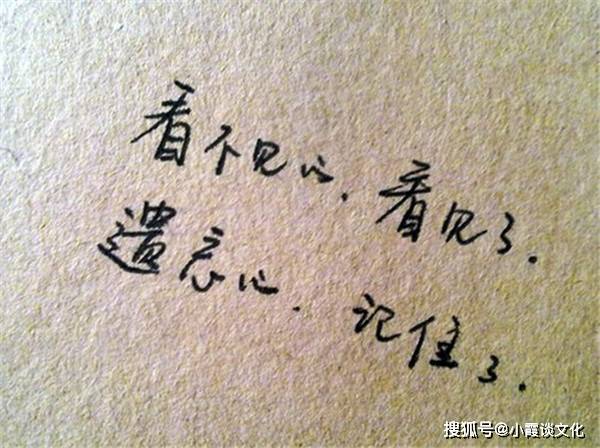 看不见的，看见了.
遺忘的. 记住了.
搜狐号@小霞谈文化